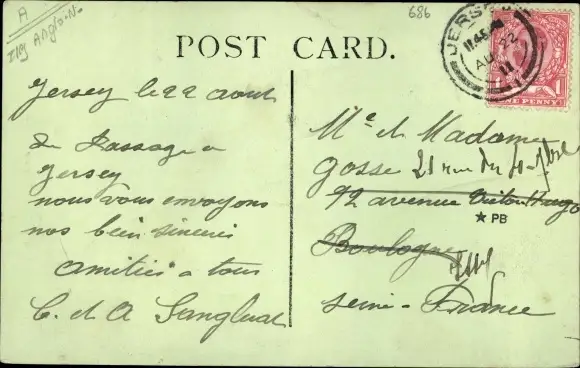 A
Anglo-N.
686
POST CARD.
JERSEY
11.45 AM
AU 22
11
ONE PENNY
Jersey le 22 aout
de Passage a
Jersey
nous vous envoyons
nos bien sincères
amitiés a tous
C. et A
Mr et Madame
Gosse 21 rue du
92 avenue Victor Hugo
★ PB
Boulogne
Seine - France